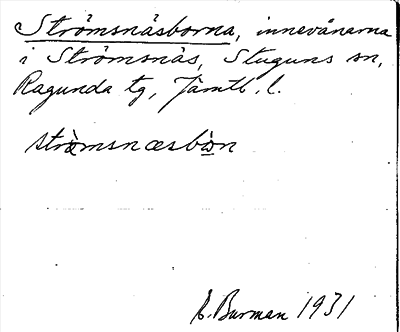 Strömsnäsborna, innevånarna
i Strömsnäs, Stuguns sn,
Ragunda tg, Jämtl. l.
strömsnæsbòn
E. Burman 1931